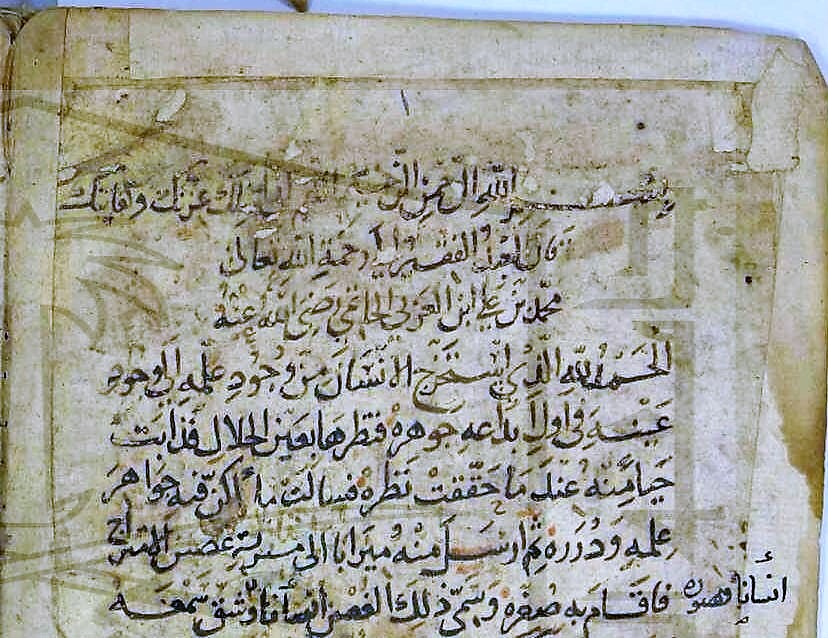 بسم الله الرحمن الرحيم
قال العبد الفقير الى رحمة الله تعالى
محمد بن علي ابن العربي الحاتمي رضي الله عنه
الحمد لله الذي استخرج الانسان من وجود علمه الى وجود
عينه في اول ابداعه جوهرة فنظرها بعين الجلال فذابت
حيا منه عند ما حققت نظره فسالت ما اكن فيه جواهر
علمه ودرره ثم ارسل منه ميزابا الى غصن
فاقام به صغره وسمى ذلك الغصن انسانا وشق سمعه
انسانا